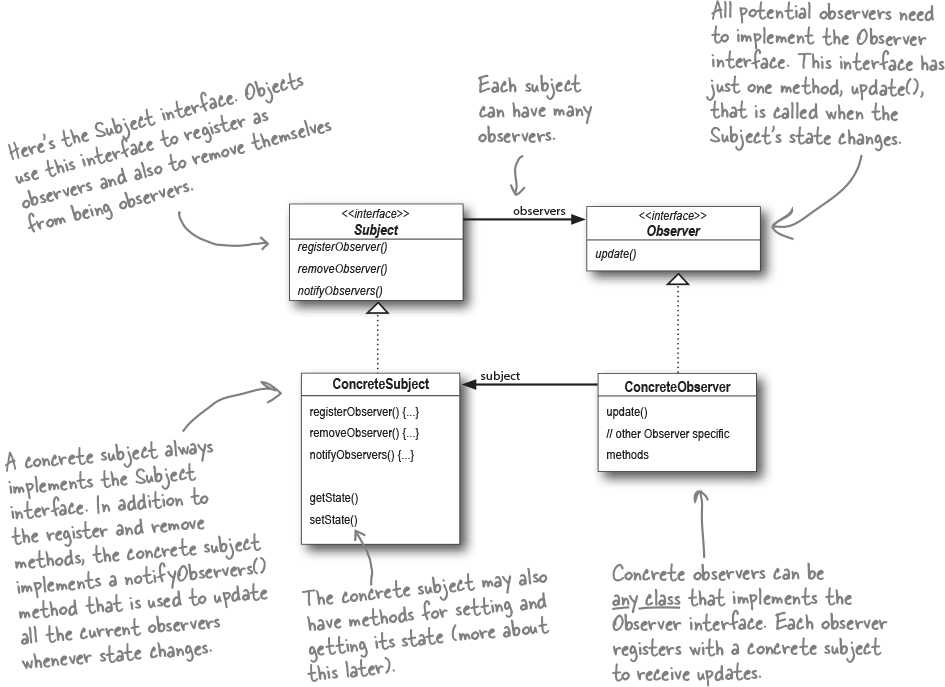 All potential observers need
to implement the Observer
interface. This interface has
just one method, update(),
that is called when the
Subject's state changes.
Each subject
can have many
observers.
Here's the Subject interface. Objects
use this interface to register as
observers and also to remove themselves
from being observers.
<<interface>>
Subject
registerObserver()
removeObserver()
notifyObservers()
observers
<<interface>>
Observer
update()
ConcreteSubject
registerObserver() {...}
removeObserver() {...}
notifyObservers() {...}
getState()
setState()
subject
ConcreteObserver
update()
// other Observer specific
methods
A concrete subject always
implements the Subject
interface. In addition to
the register and remove
methods, the concrete subject
implements a notifyObservers()
method that is used to update
all the current observers
whenever state changes.
The concrete subject may also
have methods for setting and
getting its state (more about
this later).
Concrete observers can be
any class that implements the
Observer interface. Each observer
registers with a concrete subject
to receive updates.